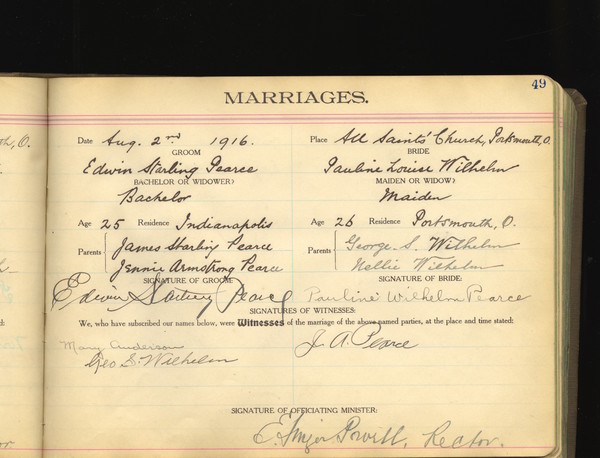 49
MARRIAGES.
Date Aug. 2nd 1916. Place All Saints' Church, Portsmouth, O.
GROOM BRIDE
Edwin Starling Pearce Pauline Louise Wilhelm
BACHELOR OR WIDOWER? MAIDEN OR WIDOW?
Bachelor Maiden
Age 25 Residence Indianapolis Age 26 Residence Portsmouth, O.
Parents James Starling Pearce Parents George S. Wilhelm
Jennie Armstrong Pearce Nellie Wilhelm
SIGNATURE OF GROOM SIGNATURE OF BRIDE:
Edwin Starling Pearce Pauline Wilhelm Pearce
SIGNATURES OF WITNESSES:
We, who have subscribed our names below, were Witnesses of the marriage of the above named parties, at the place and time stated:
Mary Anderson J. A. Pearce
Geo S. Wilhelm
SIGNATURE OF OFFICIATING MINISTER:
E. Powell, Rector.